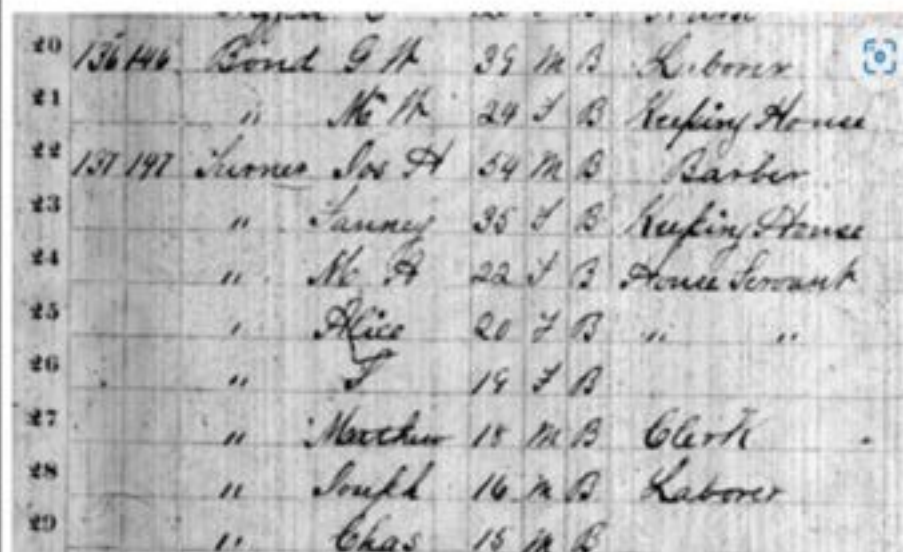 20 136 146 Bond G W 39 M B Laborer
21 " M W 24 F B Keeping House
22 137 147 Turner Jos H 54 M B Barber
23 " Fanney 35 F B Keeping House
24 " M A 22 F B House Servant
25 " Alice 20 F B " "
26 " F 19 F B
27 " Matthew 18 M B Clerk
28 " Joseph 16 M B Laborer
29 " Chas 15 M B